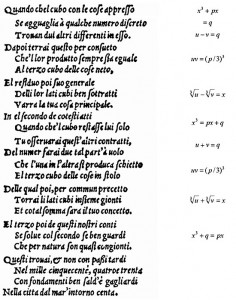 Quando chel cubo con le cose appresso
x³ + px
Se agguaglia à qualche numero discreto
= q
Trouan dui altri differenti in esso.
u – v = q
Dapoi terrai questo per consueto
Che'l lor produtto sempre sia eguale
uv = (p / 3)³
Al terzo cubo delle cose neto,
El residuo poi suo generale
Delli lor lati cubi ben sottratti
∛u – ∛v = x
Varra la tua cosa principale.
In el secondo de cotesti atti
x³ = px + q
Quando che'l cubo restasse lui solo
Tu osseruarai quest'altri contratti,
u + v = q
Del numer farai due tal part'à uolo
Che l'una in l'altra si produca schietto
uv = (p / 3)³
El terzo cubo delle cose in stolo
Delle qual poi, per commun precetto
Torrai li lati cubi insieme gionti
∛u + ∛v = x
Et cotal somma sara il tuo concetto.
El terzo poi de questi nostri conti
Se solue col secondo se ben guardi
x³ + q = px
Che per natura son quasi congionti.
Questi trouai, & non con passi tardi
Nel mille cinquecentè, quatroe trenta
Con fondamenti ben sald'è gagliardi
Nella citta dal mar'intorno centa.